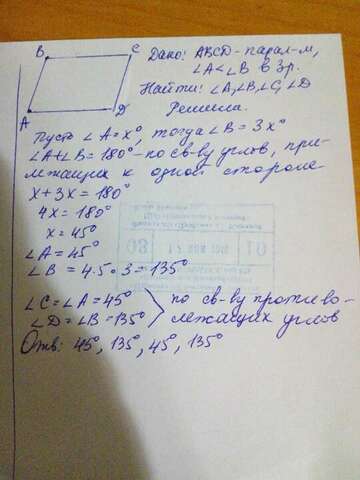 B
C
A
D
Дано: ABCD - парал-м,
∠A<∠B в 3р.
Найти: ∠A, ∠B, ∠C, ∠D
Решение.
Пусть ∠A = x° тогда ∠B = 3x°
∠A+∠B = 180° - по св-ву углов, при-
лежащих к одной стороне
x + 3x = 180°
4x = 180°
x = 45°
∠A = 45°
∠B = 45 · 3 = 135°
∠C = ∠A = 45°
∠D = ∠B = 135°
по св-ву противо-
лежащих углов
Отв: 45°, 135°, 45°, 135°